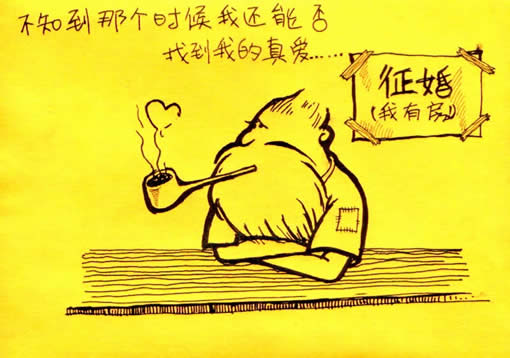 不知到那个时候我还能否
找到我的真爱……
征婚
(我有房)